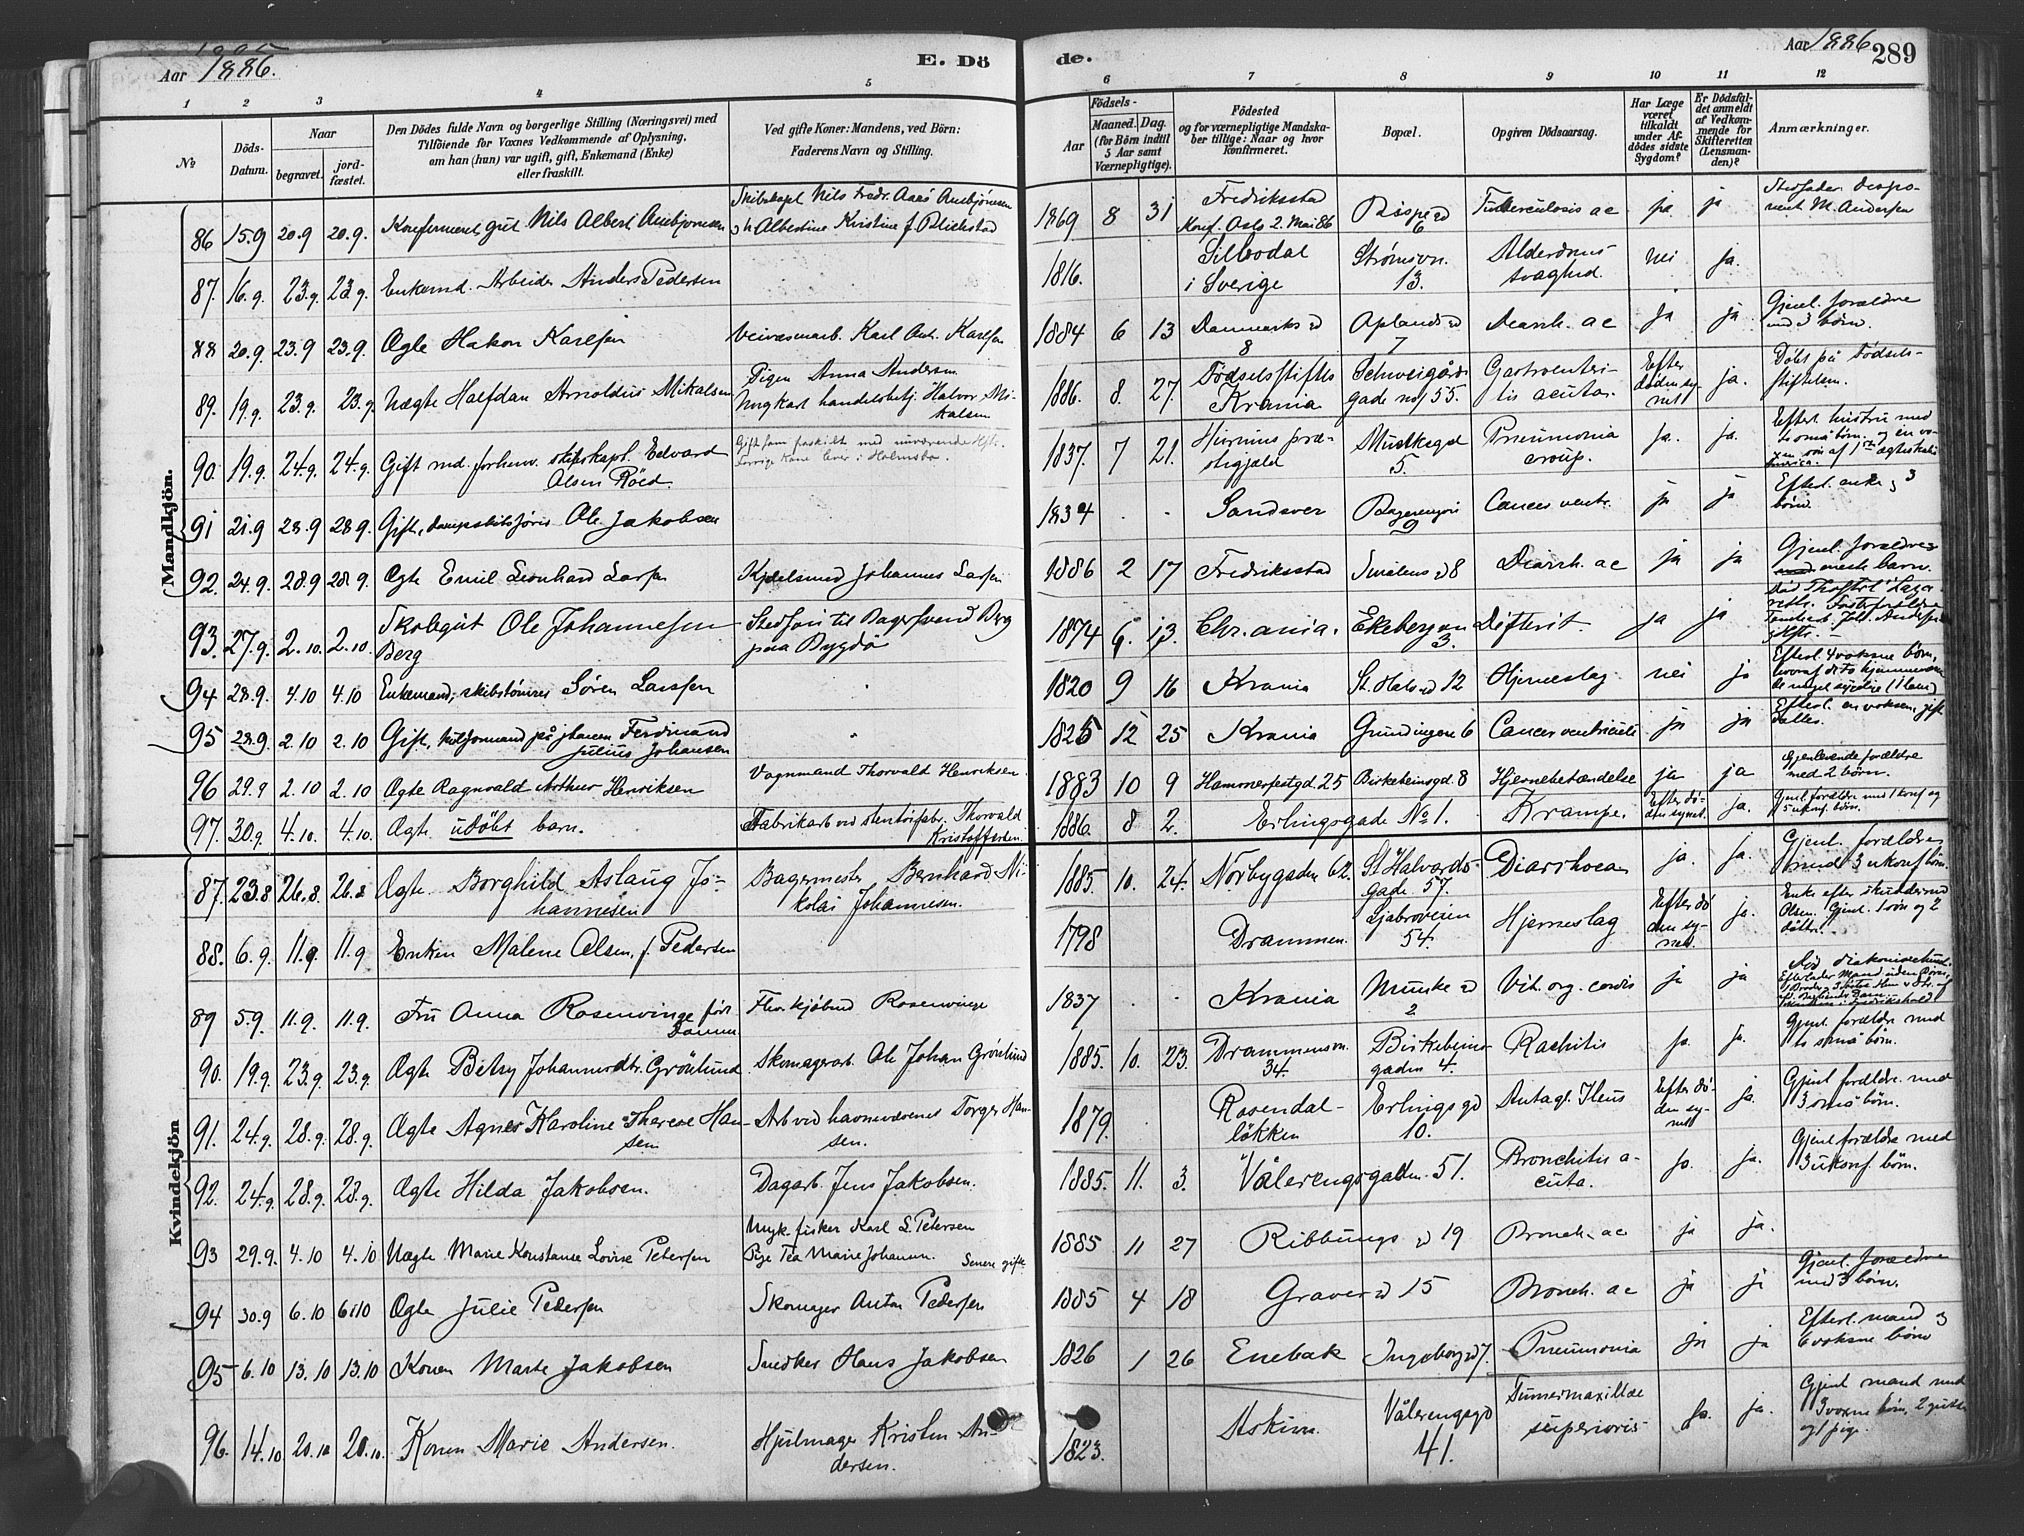 Aar 1886.
E. Dö
de.
Aar 1886
289
1 2 3 4 5 6 7 8 9 10 11 12
№
Döds-
Datum.
Naar
begravet.
jord-
fæstet.
Den Dödes fulde Navn og borgerlige Stilling (Næringsvei) med
Tilföiende for Voxnes Vedkommende af Oplysning,
om han (hun) var ugift, gift, Enkemand (Enke)
eller fraskilt.
Ved gifte Koner: Mandens, ved Börn:
Faderens Navn og Stilling.
Födsels-
Aar
Maaned. Dag.
(for Börn indtil
5 Aar samt
Værnepligtige).
Födested
og for værnepligtige Mandska-
ber tillige: Naar og hvor
konfirmeret.
Bopæl.
Opgiven Dödsaarsag.
Har Læge
været
tilkaldt
under Af-
dödes sidste
Sygdom?
Er Dödsfal-
det anmeldt
af Vedkom-
mende for
Skifteretten
(Lensman-
den)?
Anmærkninger.
Mandkjön.
86 15.9 20.9 20.9. Konfirmeret gut Nils Albert 1869 8 31 Fredriksstad Konf. Oslo 2. Mai 86 6 Tuberculosis ac ja ja M. Andersen
87. 16.9. 23.9. 23.9. Enkemd. Arbeider Anders Pedersen 1816. i Sverige Strømsvn. 13. nei ja.
88 20.9. 23.9 23.9. Ægte Hakon Karlsen Karl Ant. Karlsen 1884 6 13 8 7 Diarrh. ac ja ja. Gjenl. forældre
med 3 børn.
89. 19.9. 23.9. 23.9. Uægte Halfdan Arnoldus Mikalsen Pigen Anna Andersen
Ungkarl handelsbetj. Halvor Mi-
kalsen 1886. 8. 27. Fødselsstiftels
Krania Schweigårds
gade 55. Gastroenteri-
tis acuta. Efter
døden sy-
net ja. Døbt på Fødsels-
stiftelsen.
90. 19.9. 24.9. 24.9. Gift md. forhenv. skibskapt. Edvard
Olsen Röed. 1837. 7 21. 5. Pneumonia
croup. ja. ja.
91 21.9 28.9 28.9. Gift, Ole Jakobsen 1834 Sandsver 9 Cancer ventr. ja ja Efterl. enke og 3
børn.
92. 24.9. 28.9 28.9. Ægte Emil Leonhard Larsen Kjedelsmed Johannes Larsen 1886 2 17 Fredriksstad Smålensgd 8 Diarrh. ac ja ja Gjenl. forældre
93. 27.9. 2.10. 2.10. Skolegut Ole Johannesen
Berg Stedsøn til Bagersvend Berg
paa Bygdö 1874 6. 13. Chr.ania. Ekebergvn
3. Difterit. ja ja
94 28.9. 4.10 4.10 Enkemand, skibstömrer Sören Larsen 1820 9 16 Krania St. Hals gd 12 Hjerneslag nei ja Efterl. 4 voksne børn,
95 28.9. 2.10 2.10 Gift, Ferdinand
Julius Johansen 1825 12 25 Krania Grundingen 6 Cancer ventriculi ja ja Efterl. en voksen, gift
datter.
96 29.9 2.10 2.10 Ægte Ragnvald Arthur Henriksen Vognmand Thorvald Henriksen. 1883 10 9 Hammerfestgd. 25 Birkebeinsgd. 8 Hjernebetændelse ja ja Gjenlevende forældre
med 2 børn.
97. 30.9. 4.10. 4.10. Ægte udöbt barn. Fabrikarb. ved stentöifabr. Thorvald
Kristoffersen 1886. 8 2. Erlingsgade No 1. Krampe. Efter dö-
den synet. ja. Gjenl. forældre med 1 konf. og
5 ukonf. børn.
Kvindekjön
87. 23.8 26.8. 26.8 Ægte Borghild Aslaug Jo-
hannesen Bagermester Bernhard Ni-
kolai Johannesen. 1885. 10. 24. Nordbygaden 62. St Halvards-
gade 57. Diarrhoea ja. ja. Gjenl. forældre
med 3 ukonf. børn.
88. 6.9. 11.9. 11.9 Enken Malene Olsen, f. Pedersen 1798 Drammen. Ljabroveien
54. Hjerneslag Efter dö
den sy-
net. ja. Enke efter
Olsen. Gjenl. 1 søn og 2
døttre.
89 5.9. 11.9. 11.9. Fru Anna Rosenvinge född
Damm. Rosenvinge 1837 Krania Munke gd
2 Vit. org. cordis ja ja
90. 19.9. 23.9. 23.9. Ægte Betsy Johannesdtr. Grönlund Skomagerarb. Ole Johan Grönlund 1885. 10. 23. Drammensvn.
34. Birkebeins-
gaden 4. Rachitis ja. ja. Gjenl. forældre med
to små børn.
91. 24.9. 28.9. 28.9. Ægte Agnes Karoline Therese Han-
sen Arb. ved havnevæsenet Torger Han-
sen. 1879. Rosendal-
løkken Erlings gd
10. Antag. Ileus Efter dö-
den sy-
net ja. Gjenl. forældre med
3 små børn.
92. 24.9 28.9. 28.9 Ægte Hilda Jakobsen. Dagarb. Jens Jakobsen. 1885. 11. 3. Vålerengsgaden 51. Bronchitis a-
cuta. ja. ja. Gjenl forældre med
3 ukonf. børn.
93 29.9. 4.10 4.10 Uægte Marie Konstanse Lovise Petersen Ungk. fisker Karl L. Petersen
Pige Tea Marie Johannn. Senere gift. 1885 11 27 Ribbungs gd 19 Bronch. ac ja ja.
94 30.9 6.10 6.10 Ægte Julie Pedersen Skomager Anton Pedersen 1885 4 18 Graver gd 15 Bronch. ac ja ja Gjenl. forældre
med 3 børn.
95 6.10 13.10 13.10 Konen Marte Jakobsen Snedker Hans Jakobsen 1826 1 26 Enebak Ingeborg gd 7. Pneumonia ja ja Efterl. mand og
6 voksne børn
96. 14.10 20.10 20.10. Konen Marie Andersen. Hjulmager Kristen An-
dersen. 1823. Askim. Vålerengsgd
41. Tumor maxillae
superioris ja. ja. Gjenl mand med
3 voxne børn, 2 gutter
og 1 pige.